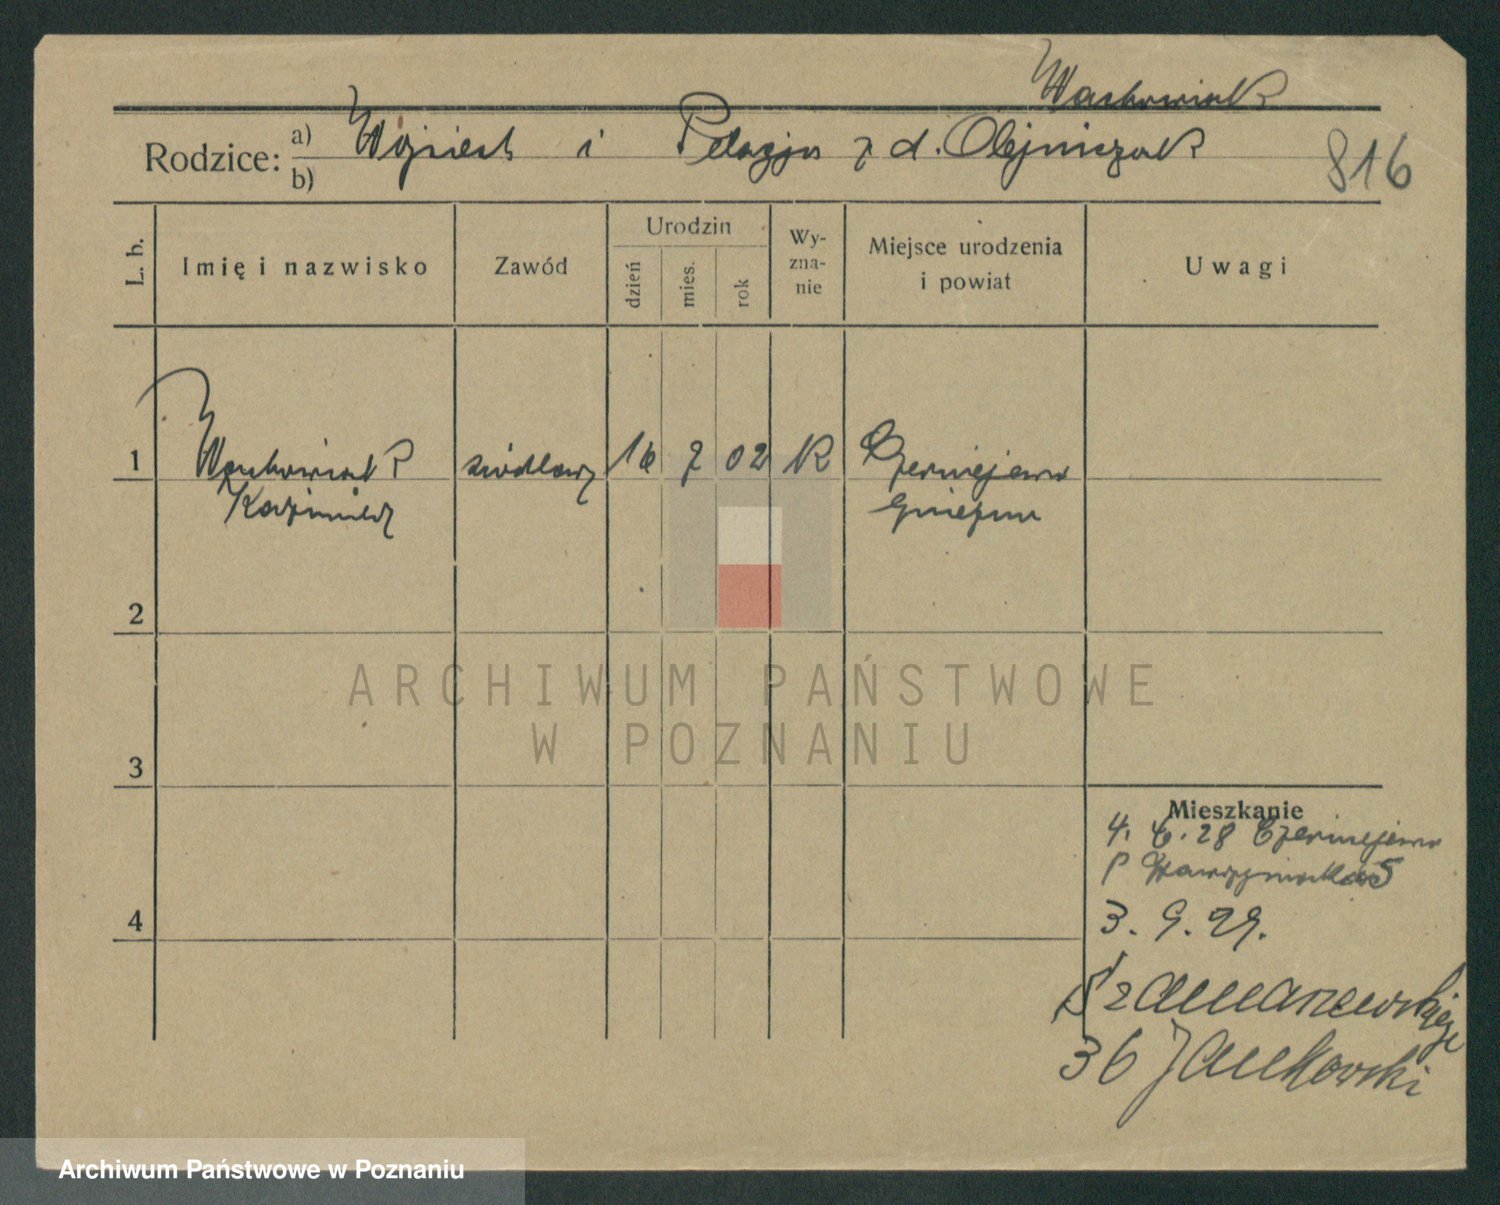 Wachowiak
Rodzice: a) Wojciech i Pelagja z d. Olejniczak
b)
816
L. b.
Imię i nazwisko
Zawód
Urodzin
dzień
mies.
rok
Wy-
zna-
nie
Miejsce urodzenia
i powiat
Uwagi
1 Wachowiak siodlarz 16 7 02 R Czerniejewo
Kazimierz Gniezno
2
3
4
ARCHIWUM PAŃSTWOWE
W POZNANIU
Mieszkanie
4. 6. 28 Czerniejewo
P Wawrzyniaka 5
3. 9. 29.
Szamarzewskiego
36 Jankowski
Archiwum Państwowe w Poznaniu